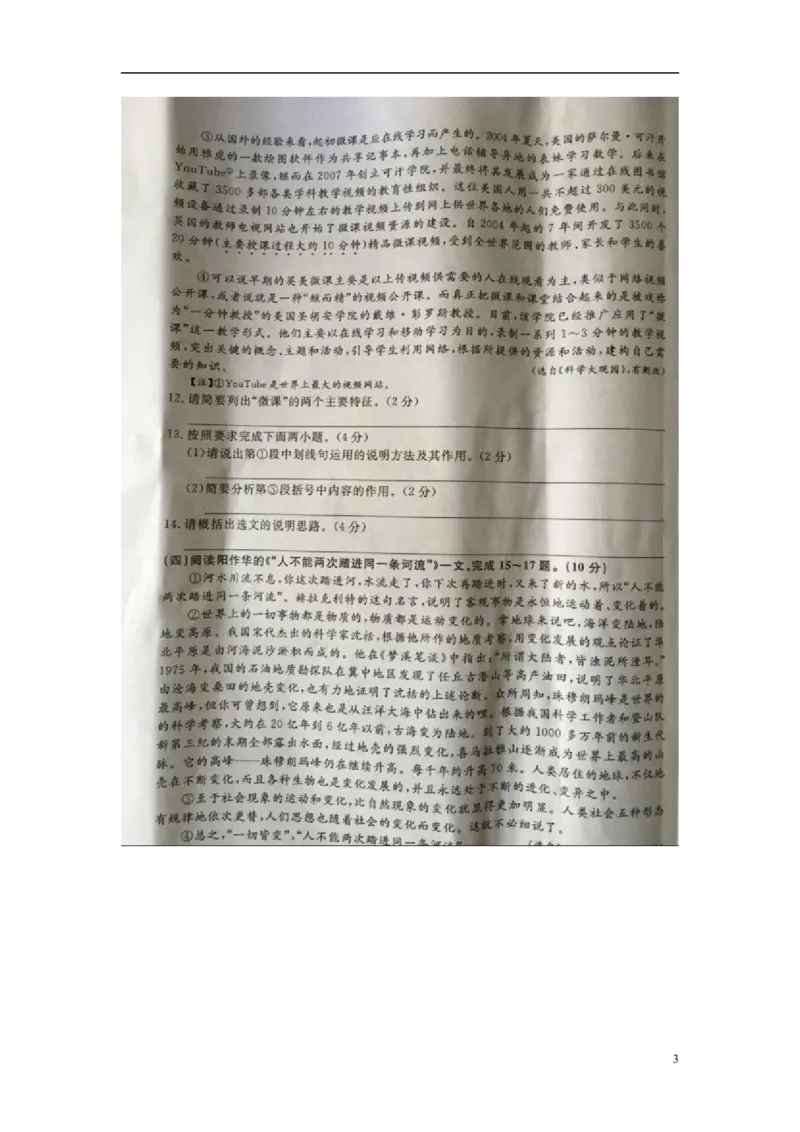 ③从国外的经验来看,起初微课是应在线学习而产生的。2004年夏天,美国的萨尔曼·可汗开
始用雅虎的一款绘图软件作为共享记事本,再加上电话辅导异地的表妹学习数学。后来在
YouTube①上录像,继而在2007年创立可汗学院,并最终将其发展成为一家通过在线图书馆
收藏了3500多部各类学科教学视频的教育性组织。这位美国人用一共不超过300美元的视
频设备通过录制10分钟左右的教学视频上传到网上供世界各地的人们免费使用。与此同时,
英国的教师电视网站也开始了微课视频资源的建设。自2004年起的7年间开发了3500个
20分钟(主要授课过程大约10分钟)精品微课视频,受到全世界范围的教师、家长和学生的喜
欢。
④可以说早期的英美微课主要是以上传视频供需要的人在线观看为主,类似于网络视频
公开课,或者说就是一种“短而精”的视频公开课。而真正把微课和课堂结合起来的是被戏称
为“一分钟教授”的美国圣胡安学院的戴维·彭罗斯教授。目前,该学院已经推广应用了“微
课”这一教学形式。他们主要以在线学习和移动学习为目的,录制一系列1~3分钟的教学视
频,突出关键的概念、主题和活动,引导学生利用网络,根据所提供的资源和活动,建构自己需
要的知识。
(选自《科学大观园》,有删改)
【注】①YouTube是世界上最大的视频网站。
12.请简要列出“微课”的两个主要特征。(2分)
13.按照要求完成下面两小题。(4分)
(1)请说出第①段中划线句运用的说明方法及其作用。(2分)
(2)简要分析第③段括号中内容的作用。(2分)
14.请概括出选文的说明思路。(4分)
(四)阅读阳作华的《“人不能两次踏进同一条河流”》一文,完成15~17题。(10分)
①河水川流不息,你这次踏进河,水流走了,你下次再踏进时,又来了新的水,所以“人不能
两次踏进同一条河流”。赫拉克利特的这句名言,说明了客观事物是永恒地运动着、变化着的,
②世界上的一切事物都是物质的,物质都是运动变化的。拿地球来说吧,海洋变陆地,陆
地变高原。我国宋代杰出的科学家沈括,根据他所作的地质考察,用变化发展的观点论证了华
北平原是由河海泥沙淤积而成的。他在《梦溪笔谈》中指出:“所谓大陆者,皆浊泥所湮耳。”
1975年,我国的石油地质勘探队在冀中地区发现了任丘古潜山等高产油田,说明了华北平原
由沧海变桑田的地壳变化,也有力地证明了沈括的上述论断。众所周知,珠穆朗玛峰是世界的
最高峰,但你可曾想到,它原来也是从汪洋大海中钻出来的哩。根据我国科学工作者和登山队
的科学考察,大约在20亿年到6亿年以前,古海变为陆地。到了大约1000多万年前的新生代
新第三纪的末期全部露出水面,经过地壳的强烈变化,喜马拉雅山逐渐成为世界上最高的山
脉。它的高峰——珠穆朗玛峰仍在继续升高。每千年约升高70米。人类居住的地球,不仅地
壳在不断变化,而且各种生物也是变化发展的,并且永远处于不断的进化、变异之中。
③至于社会现象的运动和变化,比自然现象的变化就显得更加明显。人类社会五种形态
有规律地依次更替,人们思想也随着社会的变化而变化。这就不必细说了。
④总之,“一切皆变”,“人不能两次踏进同一条河流”
3